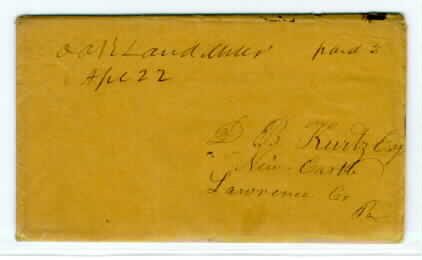 Oakland Mills paid 3
Apl 22
D B Kurtz Esq
New Castle
Lawrence Co
Pa